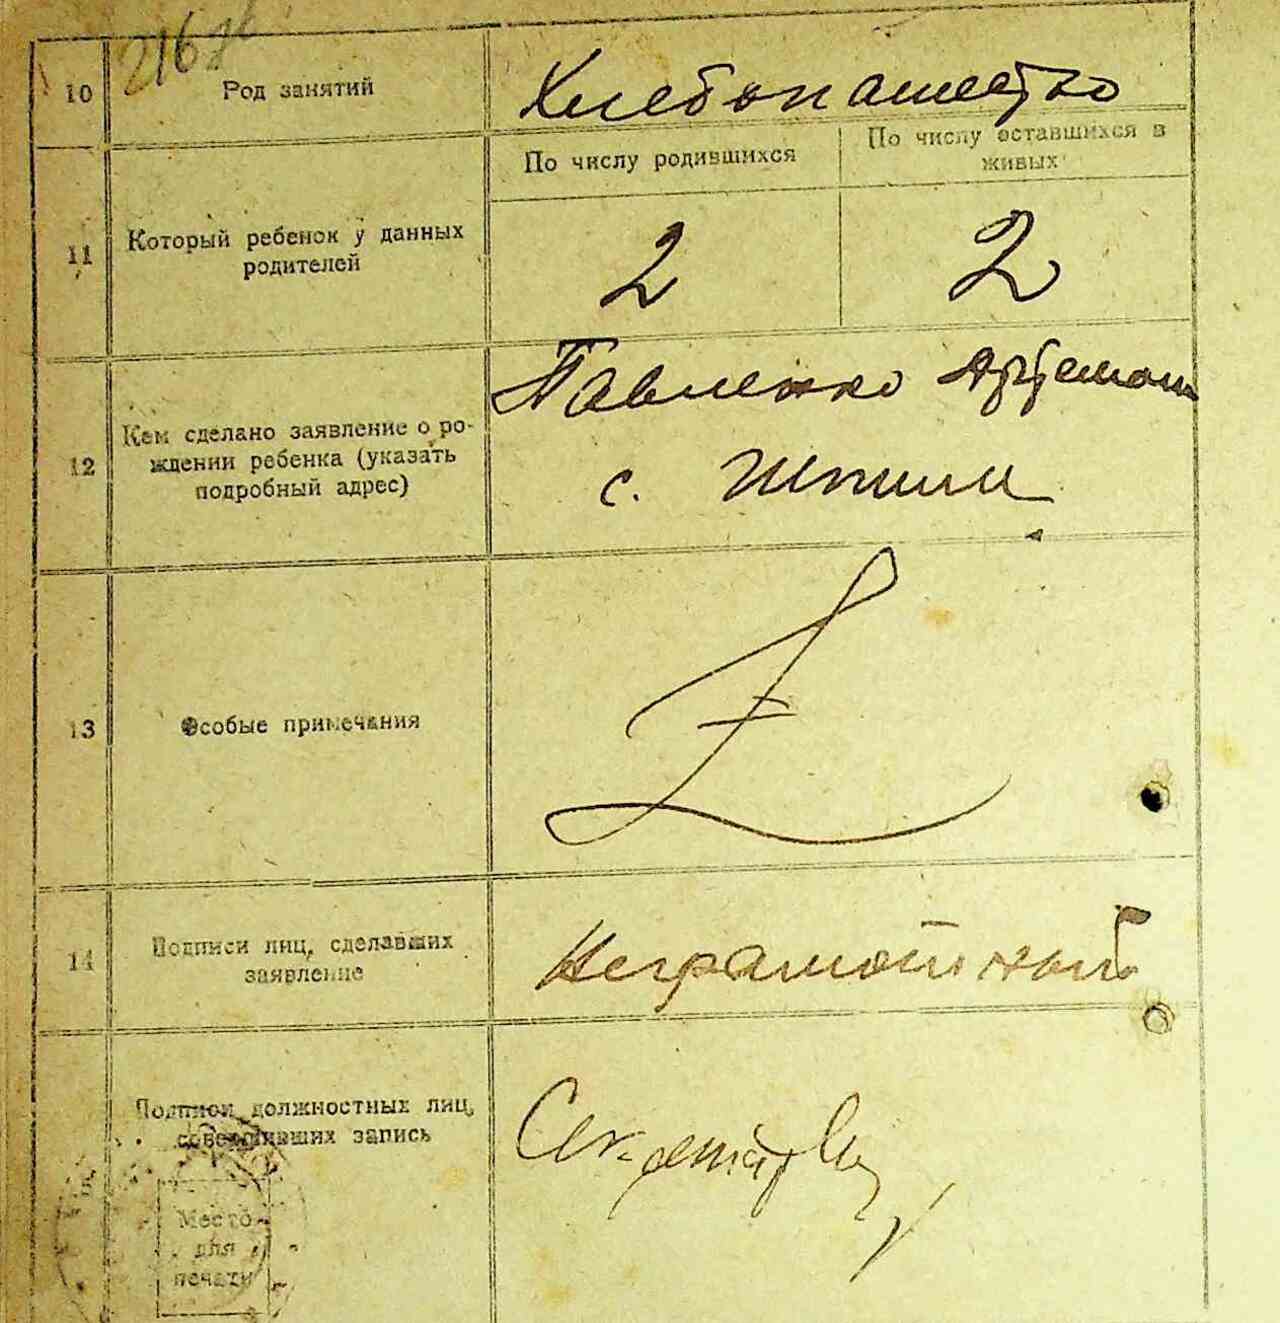 216
10
Род занятий
Хлебопашество
11
Который ребенок у данных
родителей
По числу родившихся
По числу оставшихся в
живых
2
2
12
Кем сделано заявление о ро-
ждении ребенка (указать
подробный адрес)
Павленко Артемон
с. Шпили
13
Особые примечания
14
Подписи лиц, сделавших
заявление
Неграмотный
Подписи должностных лиц,
совершивших запись
Секретарь
Место
для
печати